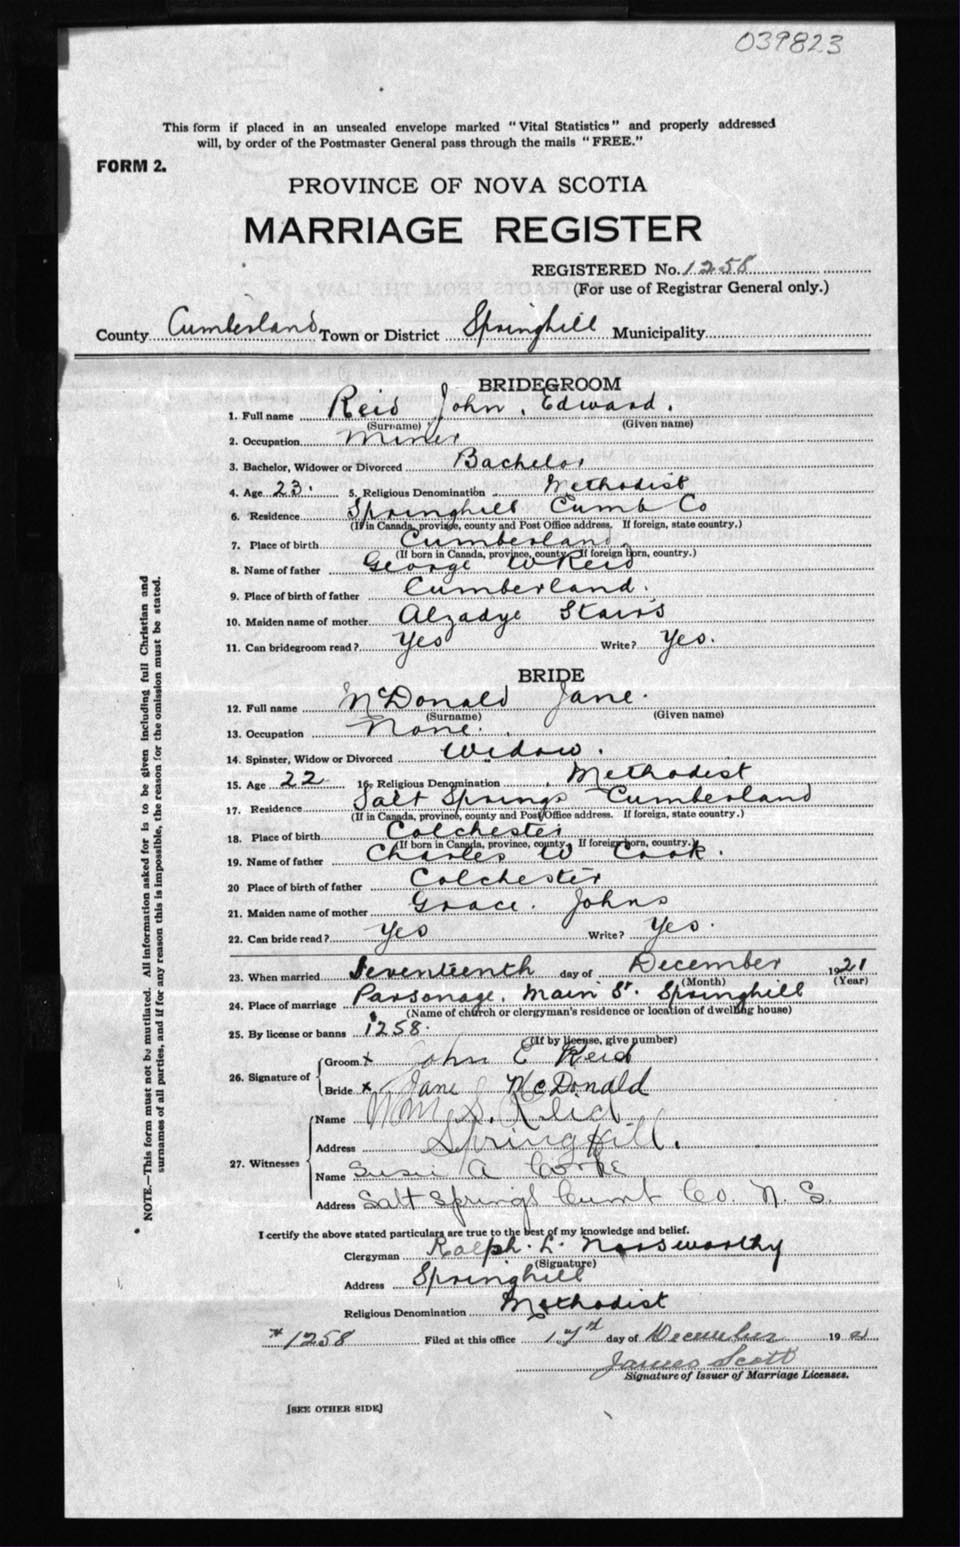 039823
This form if placed in an unsealed envelope marked "Vital Statistics" and properly addressed
will, by order of the Postmaster General pass through the mails "FREE."
FORM 2.
PROVINCE OF NOVA SCOTIA
MARRIAGE REGISTER
REGISTERED No. 1258
(For use of Registrar General only.)
County Cumberland Town or District Springhill Municipality
BRIDEGROOM
1. Full name Reid John Edward.
(Surname) (Given name)
2. Occupation Miner
3. Bachelor, Widower or Divorced Bachelor
4. Age 23. 5. Religious Denomination Methodist
6. Residence Springhill Cumb Co
(If in Canada, province, county and Post Office address. If foreign, state country.)
7. Place of birth Cumberland
(If born in Canada, province, county. If foreign born, country.)
8. Name of father George W Reid
9. Place of birth of father Cumberland.
10. Maiden name of mother Alzadye Stairs
11. Can bridegroom read? Yes Write? Yes.
BRIDE
12. Full name McDonald Jane.
(Surname) (Given name)
13. Occupation None.
14. Spinster, Widow or Divorced Widow.
15. Age 22 16. Religious Denomination Methodist
17. Residence Salt Springs Cumberland
(If in Canada, province, county and Post Office address. If foreign, state country.)
18. Place of birth Colchester
(If born in Canada, province, county. If foreign born, country.)
19. Name of father Charles W Cook.
20 Place of birth of father Colchester
21. Maiden name of mother Grace. Johns
22. Can bride read? Yes Write? Yes.
23. When married Seventeenth day of December 1921
(Month) (Year)
24. Place of marriage Parsonage. Main St. Springhill
(Name of church or clergyman's residence or location of dwelling house)
25. By license or banns 1258.
(If by license, give number)
26. Signature of Groom x John E Reid
Bride x Jane McDonald
27. Witnesses Name Wm. S. Reid
Address Springhill.
Name Susie A Cooke
Address Salt Springs Cumb Co. N. S.
I certify the above stated particulars are true to the best of my knowledge and belief.
Clergyman Ralph. L. Norsworthy
(Signature)
Address Springhill
Religious Denomination Methodist
# 1258 Filed at this office 17th day of December 1921
James Scott
Signature of Issuer of Marriage Licenses.
[SEE OTHER SIDE]
NOTE.—This form must not be mutilated. All information asked for is to be given including full Christian and
surnames of all parties, and if for any reason this is impossible, the reason for the omission must be stated.